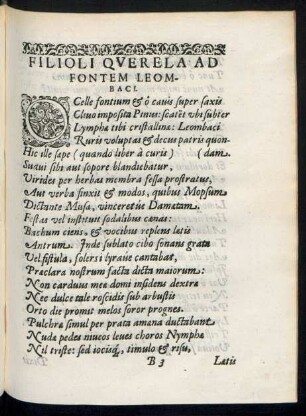 FILIOLI QVERELA AD
FONTEM LEOM-
BACI.
OCelle fontium & ô cauis super saxis
Cliuo imposita Pinus: scatẽt vbi subter
Lympha tibi cristallina: Leombaci
Ruris voluptas & decus patris quon-
Hic ille sæpe (quando liber à curis) (dam.
Suaui sibi aut sopore blandiebatur,
Virides per herbas membra fessa prostratus,
Aut verba finxit & modos, quibus Mopsum
Dictante Musa, vinceret ie Damætam.
Festas vel instituit sodalibus cænas:
Bachum ciens, & vocibus replens latis
Antrum. Inde sublato cibo sonans grata
Vel fistula, solers i lyraiue cantabat,
Præclara nostrum facta dicta maiorum:
Non carduus mee domi insidens dextræ
Nec dulce tale roscidis sub arbustis
Orto die promit melos soror prognes.
Pulchræ simul per prata amæna ductabant
Nuda pedes mucos leues choros Nymphæ
Nil triste: sed iocisq́, timulo & risu,
B 3 Latis